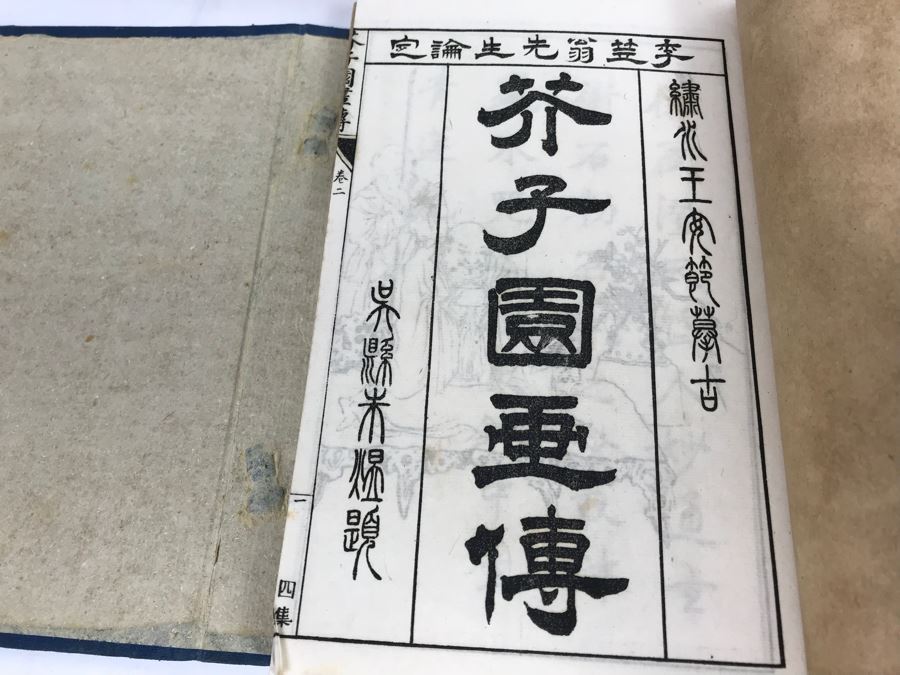 李笠翁先生論定
繡水王安節摹古
芥子園画傳
吳縣朱煜題
卷二
一
四集